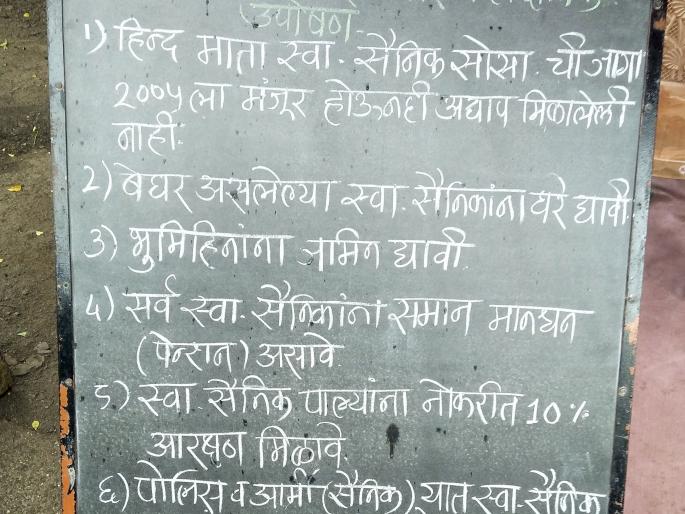 उपोषण
१) हिन्द माता स्वा. सैनिक सोसा. ची जागा
२००५ ला मंजूर होऊनही अद्याप मिळालेली
नाही.
२) बेघर असलेल्या स्वा. सैनिकांना घरे द्यावी.
३) भुमिहिनांना जमिन द्यावी
४) सर्व स्वा. सैनिकांना समान मानधन
(पेन्शन) असावे
५) स्वा. सैनिक पाल्यांना नोकरीत 10%
आरक्षण मिळावे.
६) पोलिस व आर्मी (सैनिक) यात स्वा. सैनिक